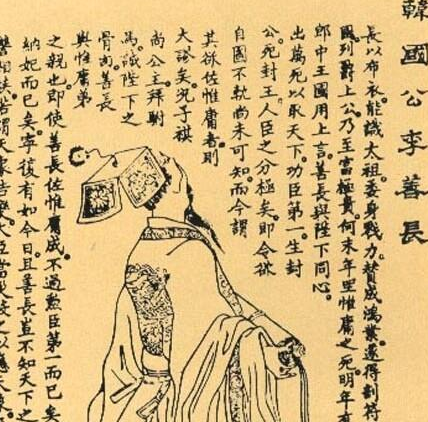 韓國公李善長
長以布衣能識太祖。委身戮力。賛成鴻業。還得剖符
國列爵上公。乃至富極貴。何末年里惟庸之死。明年有
郎中王國用上言。善長與陛下同心。
出萬死以取天下。功臣第一。生封
公。死封王。人臣之分極矣。即令欲
自圖不軌尚未可知。而今謂
其欲佐惟庸者。則
大謬矣。況子祺
尚公主。拜駙
馬。誠陛下之
骨肉。善長
與惟庸第
之親也。即使善長佐惟庸成。不過勲臣第一而已矣
納妃而已矣。寧復有如今日。且善長豈不知天下之
若謂天象告變大臣當災殺之以應天